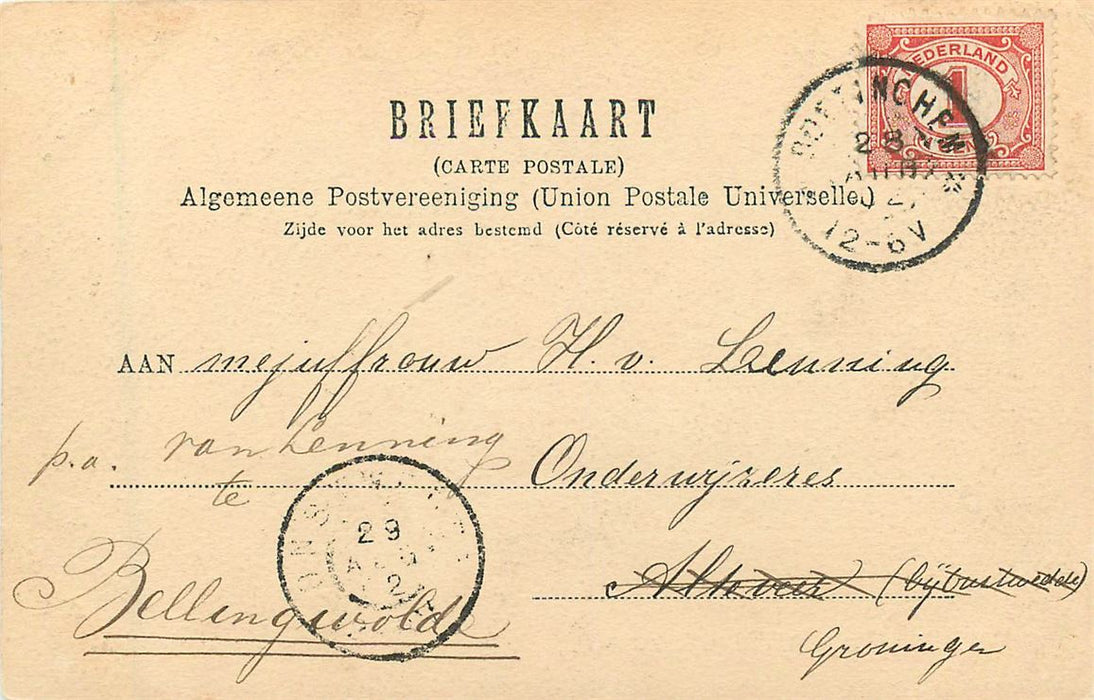 NEDERLAND
1
DOETINCHEM
28
AUG
2
12-6V
BRIEFKAART
(CARTE POSTALE)
Algemeene Postvereeniging (Union Postale Universelle)
Zijde voor het adres bestemd (Côté réservé à l'adresse)
AAN mejuffrouw H. v. Lenning
p.a. van Lenning
Onderwijzeres
te
29
AUG
2
Bellingwolde
(bij Onstwedde)
Groningen